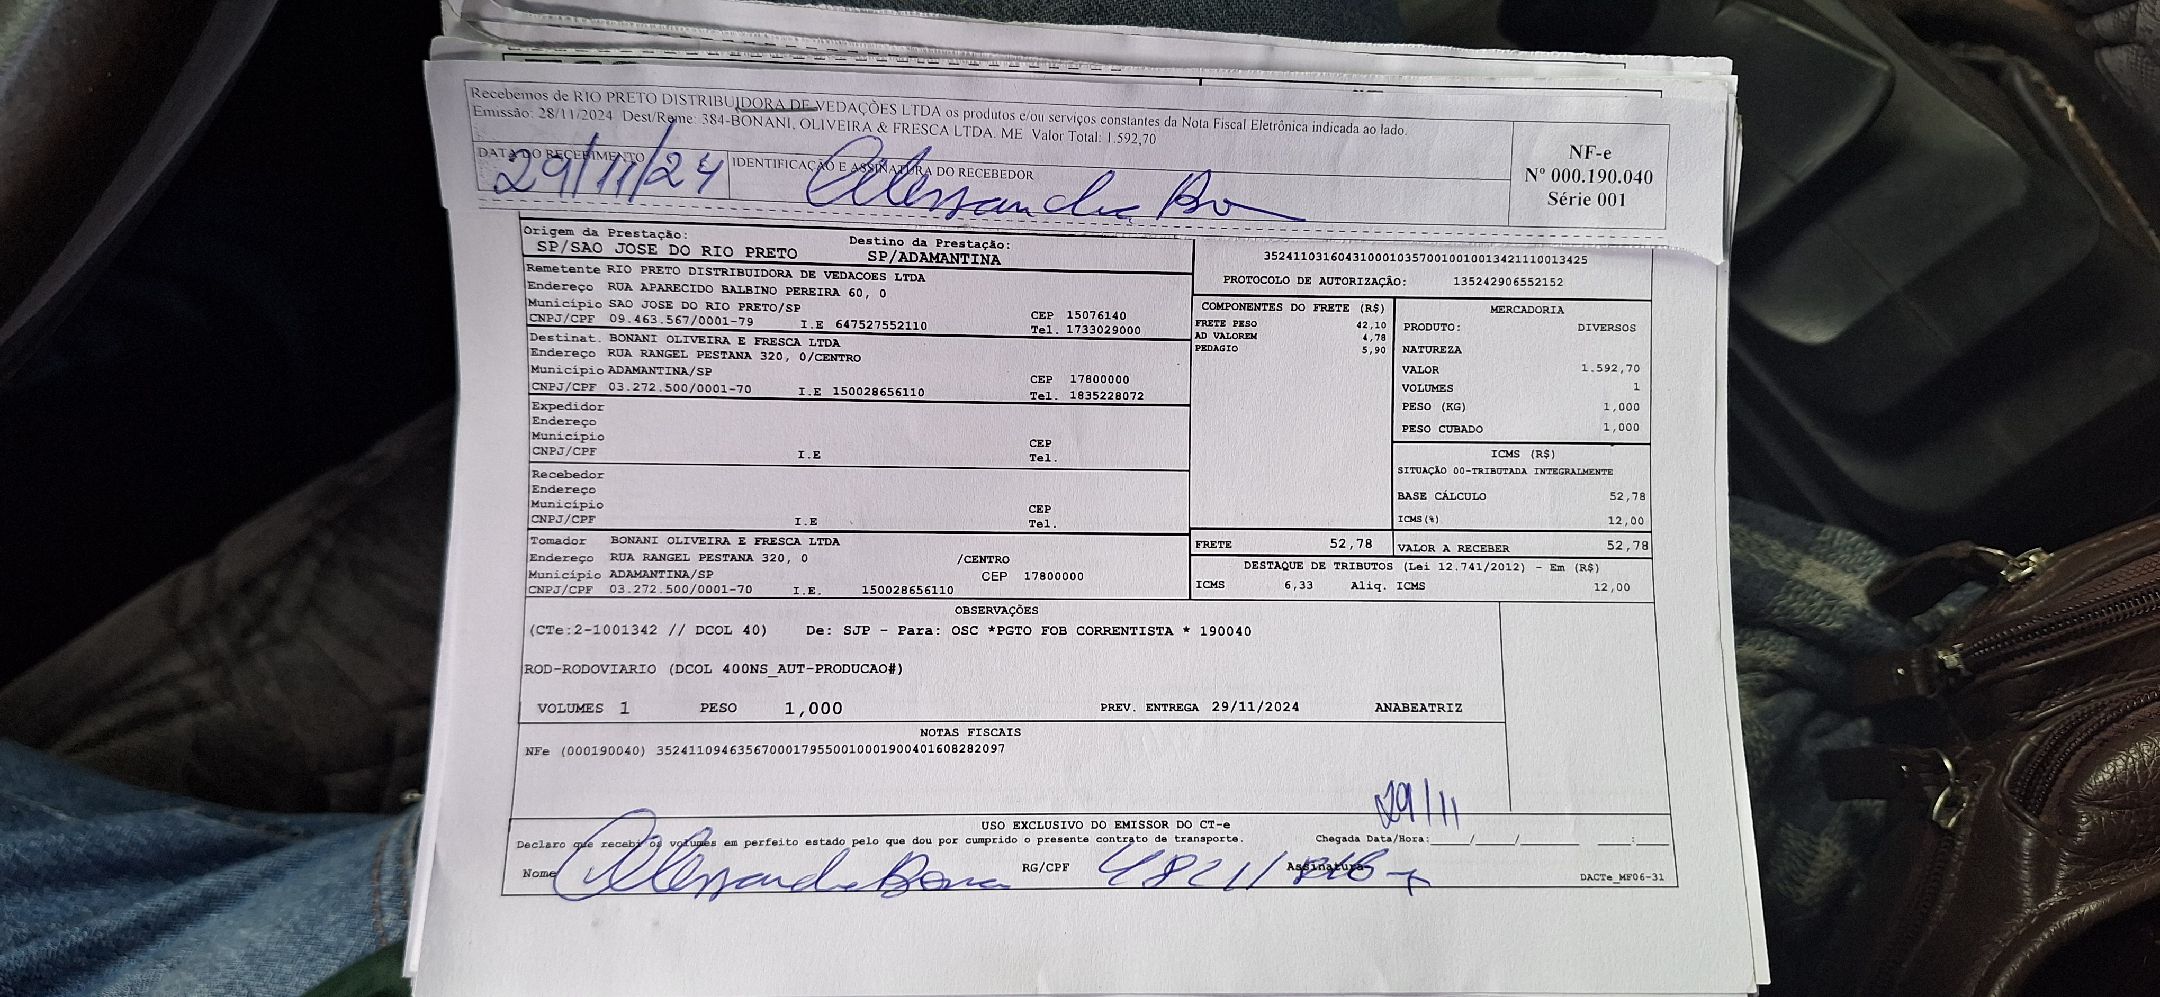 Recebemos de RIO PRETO DISTRIBUIDORA DE VEDAÇÕES LTDA os produtos e/ou serviços constantes da Nota Fiscal Eletrônica indicada ao lado.
Emissão: 28/11/2024 Dest/Reme: 384-BONANI, OLIVEIRA & FRESCA LTDA. ME Valor Total: 1.592,70
DATA DO RECEBIMENTO IDENTIFICAÇÃO E ASSINATURA DO RECEBEDOR
29/11/24 Alessandra Bo
NF-e
Nº 000.190.040
Série 001
Origem da Prestação: Destino da Prestação:
SP/SAO JOSE DO RIO PRETO SP/ADAMANTINA
Remetente RIO PRETO DISTRIBUIDORA DE VEDACOES LTDA
Endereço RUA APARECIDO BALBINO PEREIRA 60, 0
Município SAO JOSE DO RIO PRETO/SP CEP 15076140
CNPJ/CPF 09.463.567/0001-79 I.E 647527552110 Tel. 1733029000
Destinat. BONANI OLIVEIRA E FRESCA LTDA
Endereço RUA RANGEL PESTANA 320, 0/CENTRO
Município ADAMANTINA/SP CEP 17800000
CNPJ/CPF 03.272.500/0001-70 I.E 150028656110 Tel. 1835228072
Expedidor
Endereço
Município CEP
CNPJ/CPF I.E Tel.
Recebedor
Endereço
Município CEP
CNPJ/CPF I.E Tel.
Tomador BONANI OLIVEIRA E FRESCA LTDA
Endereço RUA RANGEL PESTANA 320, 0 /CENTRO
Município ADAMANTINA/SP CEP 17800000
CNPJ/CPF 03.272.500/0001-70 I.E. 150028656110
35241103160431000103570010010013421110013425
PROTOCOLO DE AUTORIZAÇÃO: 135242906552152
COMPONENTES DO FRETE (R$)
FRETE PESO 42,10
AD VALOREM 4,78
PEDAGIO 5,90
MERCADORIA
PRODUTO: DIVERSOS
NATUREZA
VALOR 1.592,70
VOLUMES 1
PESO (KG) 1,000
PESO CUBADO 1,000
ICMS (R$)
SITUAÇÃO 00-TRIBUTADA INTEGRALMENTE
BASE CÁLCULO 52,78
ICMS(%) 12,00
FRETE 52,78 VALOR A RECEBER 52,78
DESTAQUE DE TRIBUTOS (Lei 12.741/2012) - Em (R$)
ICMS 6,33 Aliq. ICMS 12,00
OBSERVAÇÕES
(CTe:2-1001342 // DCOL 40) De: SJP - Para: OSC *PGTO FOB CORRENTISTA * 190040
ROD-RODOVIARIO (DCOL 400NS_AUT-PRODUCAO#)
VOLUMES 1 PESO 1,000 PREV. ENTREGA 29/11/2024 ANABEATRIZ
NOTAS FISCAIS
NFe (000190040) 35241109463567000179550010001900401608282097
29/11
USO EXCLUSIVO DO EMISSOR DO CT-e
Declaro que recebi os volumes em perfeito estado pelo que dou por cumprido o presente contrato de transporte. Chegada Data/Hora: ____/____/______ ___:___
Nome Alessandra Bona RG/CPF Assinatura
DACTe_MF06-31